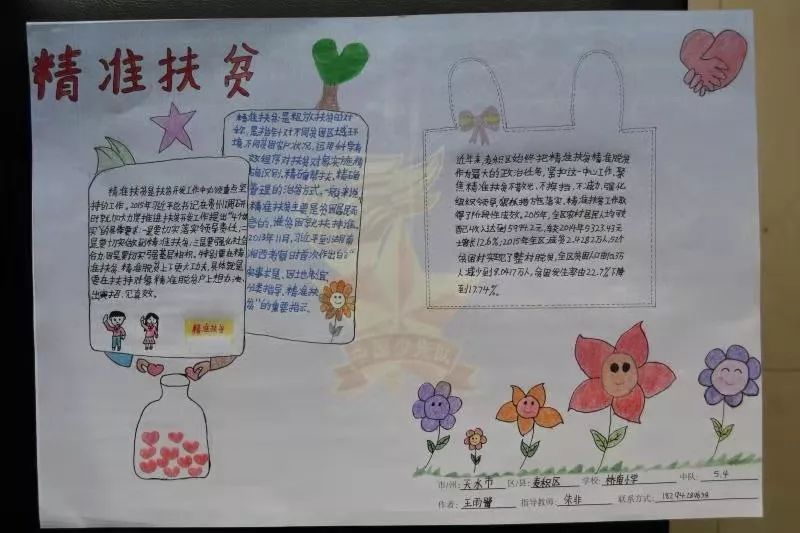 精准扶贫
精准扶贫是扶贫开发工作中必须重点坚
持的工作。2015年习近平总书记在贵州调研
时就加大力度推进扶贫开发工作提出"4个切
实"的具体要求:一是要切实落实领导责任,二
是要切实做到精准扶贫,三是要强化社会
合力,四是要切实强基层组织。特别要在精
准扶贫、精准脱贫上下更大功夫,具体就是
要在扶持对象精准
出实招、见真效。
精准扶贫
精准扶贫:是粗放扶贫的对
称,是指针对不同贫困区域环
境、不同贫困农户状况,运用科学有
效程序对扶贫对象实施精
确识别、精确帮扶、精确
管理的治贫方式。一般来说
精准扶贫主要是贫困居民
而言的,谁贫困就扶持谁。
2013年11月,习近平到湖南
湘西考察时首次作出了"
实事求是、因地制宜
分类指导、精准扶
贫"的重要指示。
近年来麦积区始终把精准扶贫精准脱贫
作为最大的政治任务,紧扣这一中心工作,聚
焦精准扶贫不散光、不换挡、不减力,强化
组织领导狠抓措施落实,精准扶贫工作取
得了阶段性成效。2015年,全区农村居民人均可支
配收入达到5994.2元,
增长12.6%,2015年全区减贫2.9287万人,52个
贫困村实现了整村脱贫,全区贫困人口由
人减少到8.0417万人,贫困发生率由22.7%下降
到17.74%。
中国少先队
市/州:天水市 区/县:麦积区 学校:桥南小学 中队:5.4
作者:王雨馨 指导教师:朱非 联系方式: